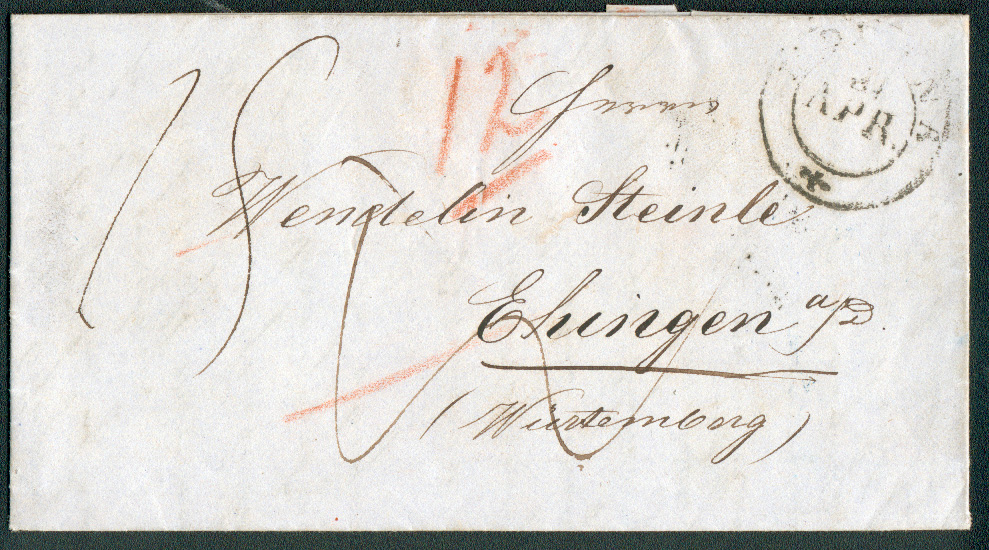 12
Herrn
Wendelin Steinle
Ehingen a/D.
(Würtemberg)
APR.